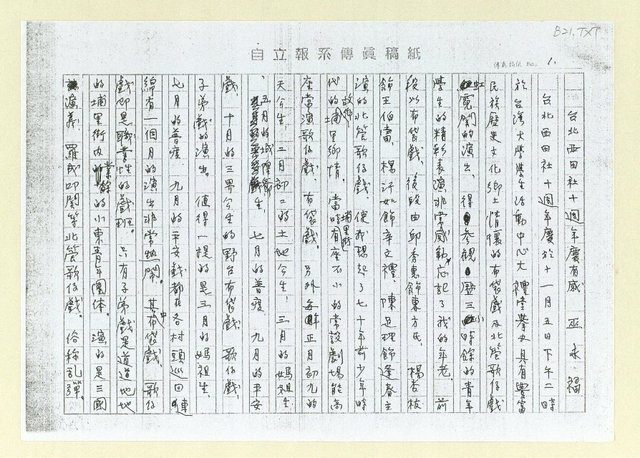 B21.TXT
自立報系傳眞稿紙
1.
台北西田社十週年慶有感 巫永福
台北西田社十週年慶於十一月五日下午二時
於台灣大學學生活動中心大禮堂舉辦具有豐富
民族歷史文化鄉土情懷的布袋戲及北管歌仔戲
寬闊的演出，得參觀歷三時餘的青年
學生的精彩表演非常感動忘記了我的年老。前
段以布袋戲，後段由邱秀惠飾東方氏，楊杏枝
飾王伯當，楊汗如飾辛文禮，陳昆理飾蓬春主
演的北管歌仔戲，使我想起了七十年前少年時
代的故鄉埔里鄉情。當時埔里有座不小的常設劇場能高
座常演歌仔戲，布袋戲。另外每年正月初九的
天公生，二月初二的土地公生，三月的媽祖生
，五月的城隍爺生，七月的普度，九月的平安
戲，十月的三界公生的野台布袋戲，歌仔戲
子弟戲的演出。值得一提的是三月的媽祖生
七月的普度，九月的平安戲都在各村頭巡回連
綿有一個月的演出非常熱鬧。其中布袋戲，歌仔
戲即是職業性的戲班。只有子弟戲是道道地地
的埔里街內業餘的小東青年團体。演的是三國
演義，羅成叩關等北管歌仔戲，俗稱亂彈。